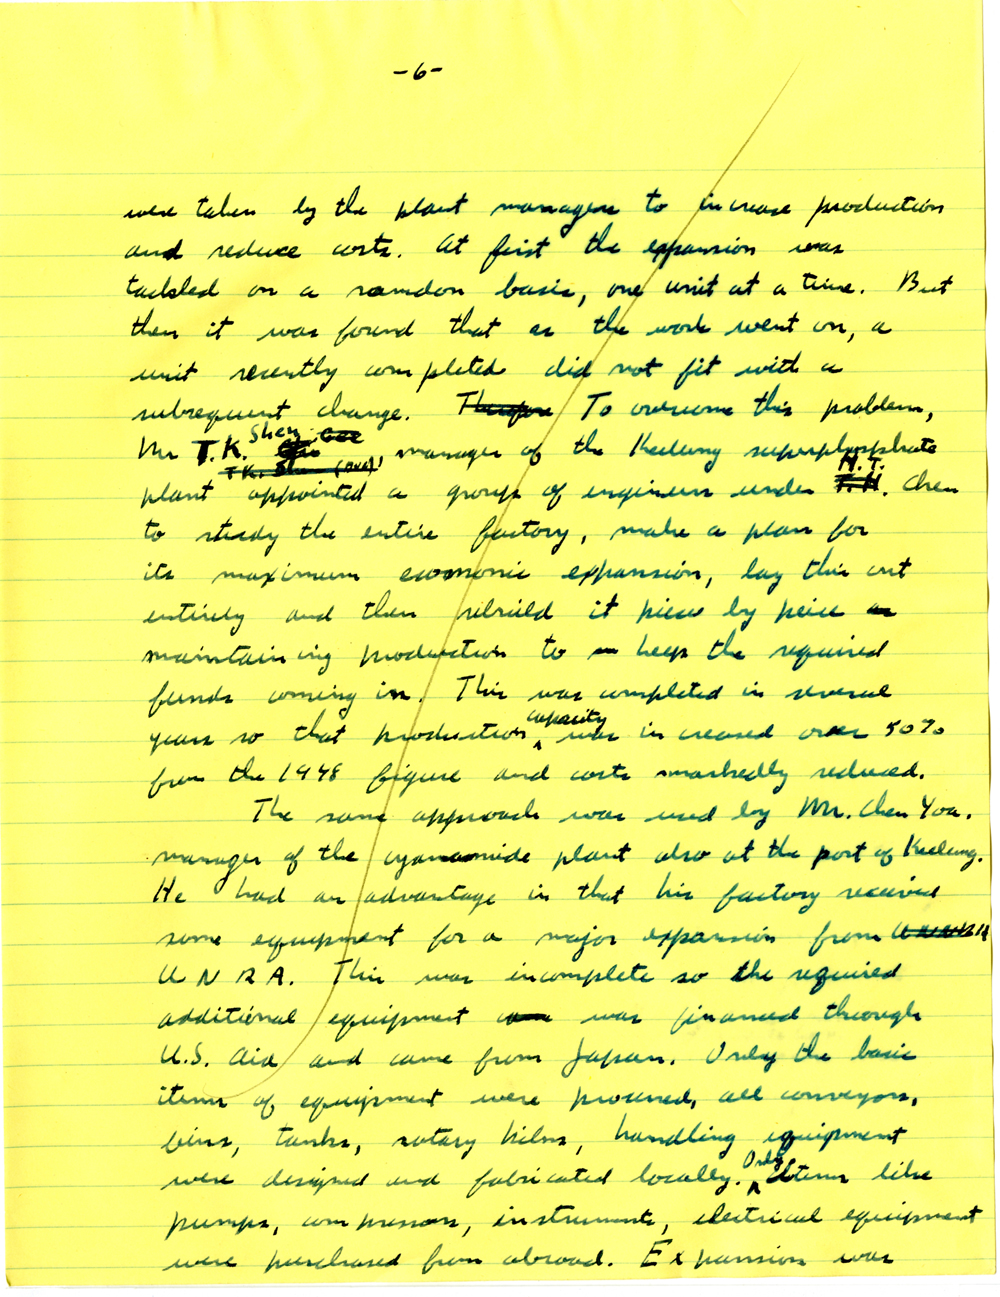 -6-
were taken by the plant managers to increase production
and reduce costs. At first the expansion was
tackled on a ramdon basis, one unit at a time. But
then it was found that as the work went on, a
unit recently completed did not fit with a
subsequent change. Therefore To overcome this problem,
Mr T.K. Shen, manager of the Keelung superphosphate
plant appointed a group of engineers under H.T. Chen
to study the entire factory, make a plan for
its maximum economic expansion, lay this out
entirely and then rebuild it piece by peice
maintaining production to keep the required
funds coming in. This was completed in several
years so that production capacity was increased over 50%
from the 1948 figure and costs markedly reduced.
The same approach was used by Mr. Chen Yoa,
manager of the cyanamide plant also at the port of Keelung.
He had an advantage in that his factory received
some equipment for a major expansion from
UNRA. This was incomplete so the required
additional equipment was financed through
U.S. Aid and came from Japan. Only the basic
items of equipment were procured, all conveyors,
bins, tanks, rotary kilns, handling equipment
were designed and fabricated locally. Only items like
pumps, compressors, instruments, electrical equipment
were purchased from abroad. Expansion was